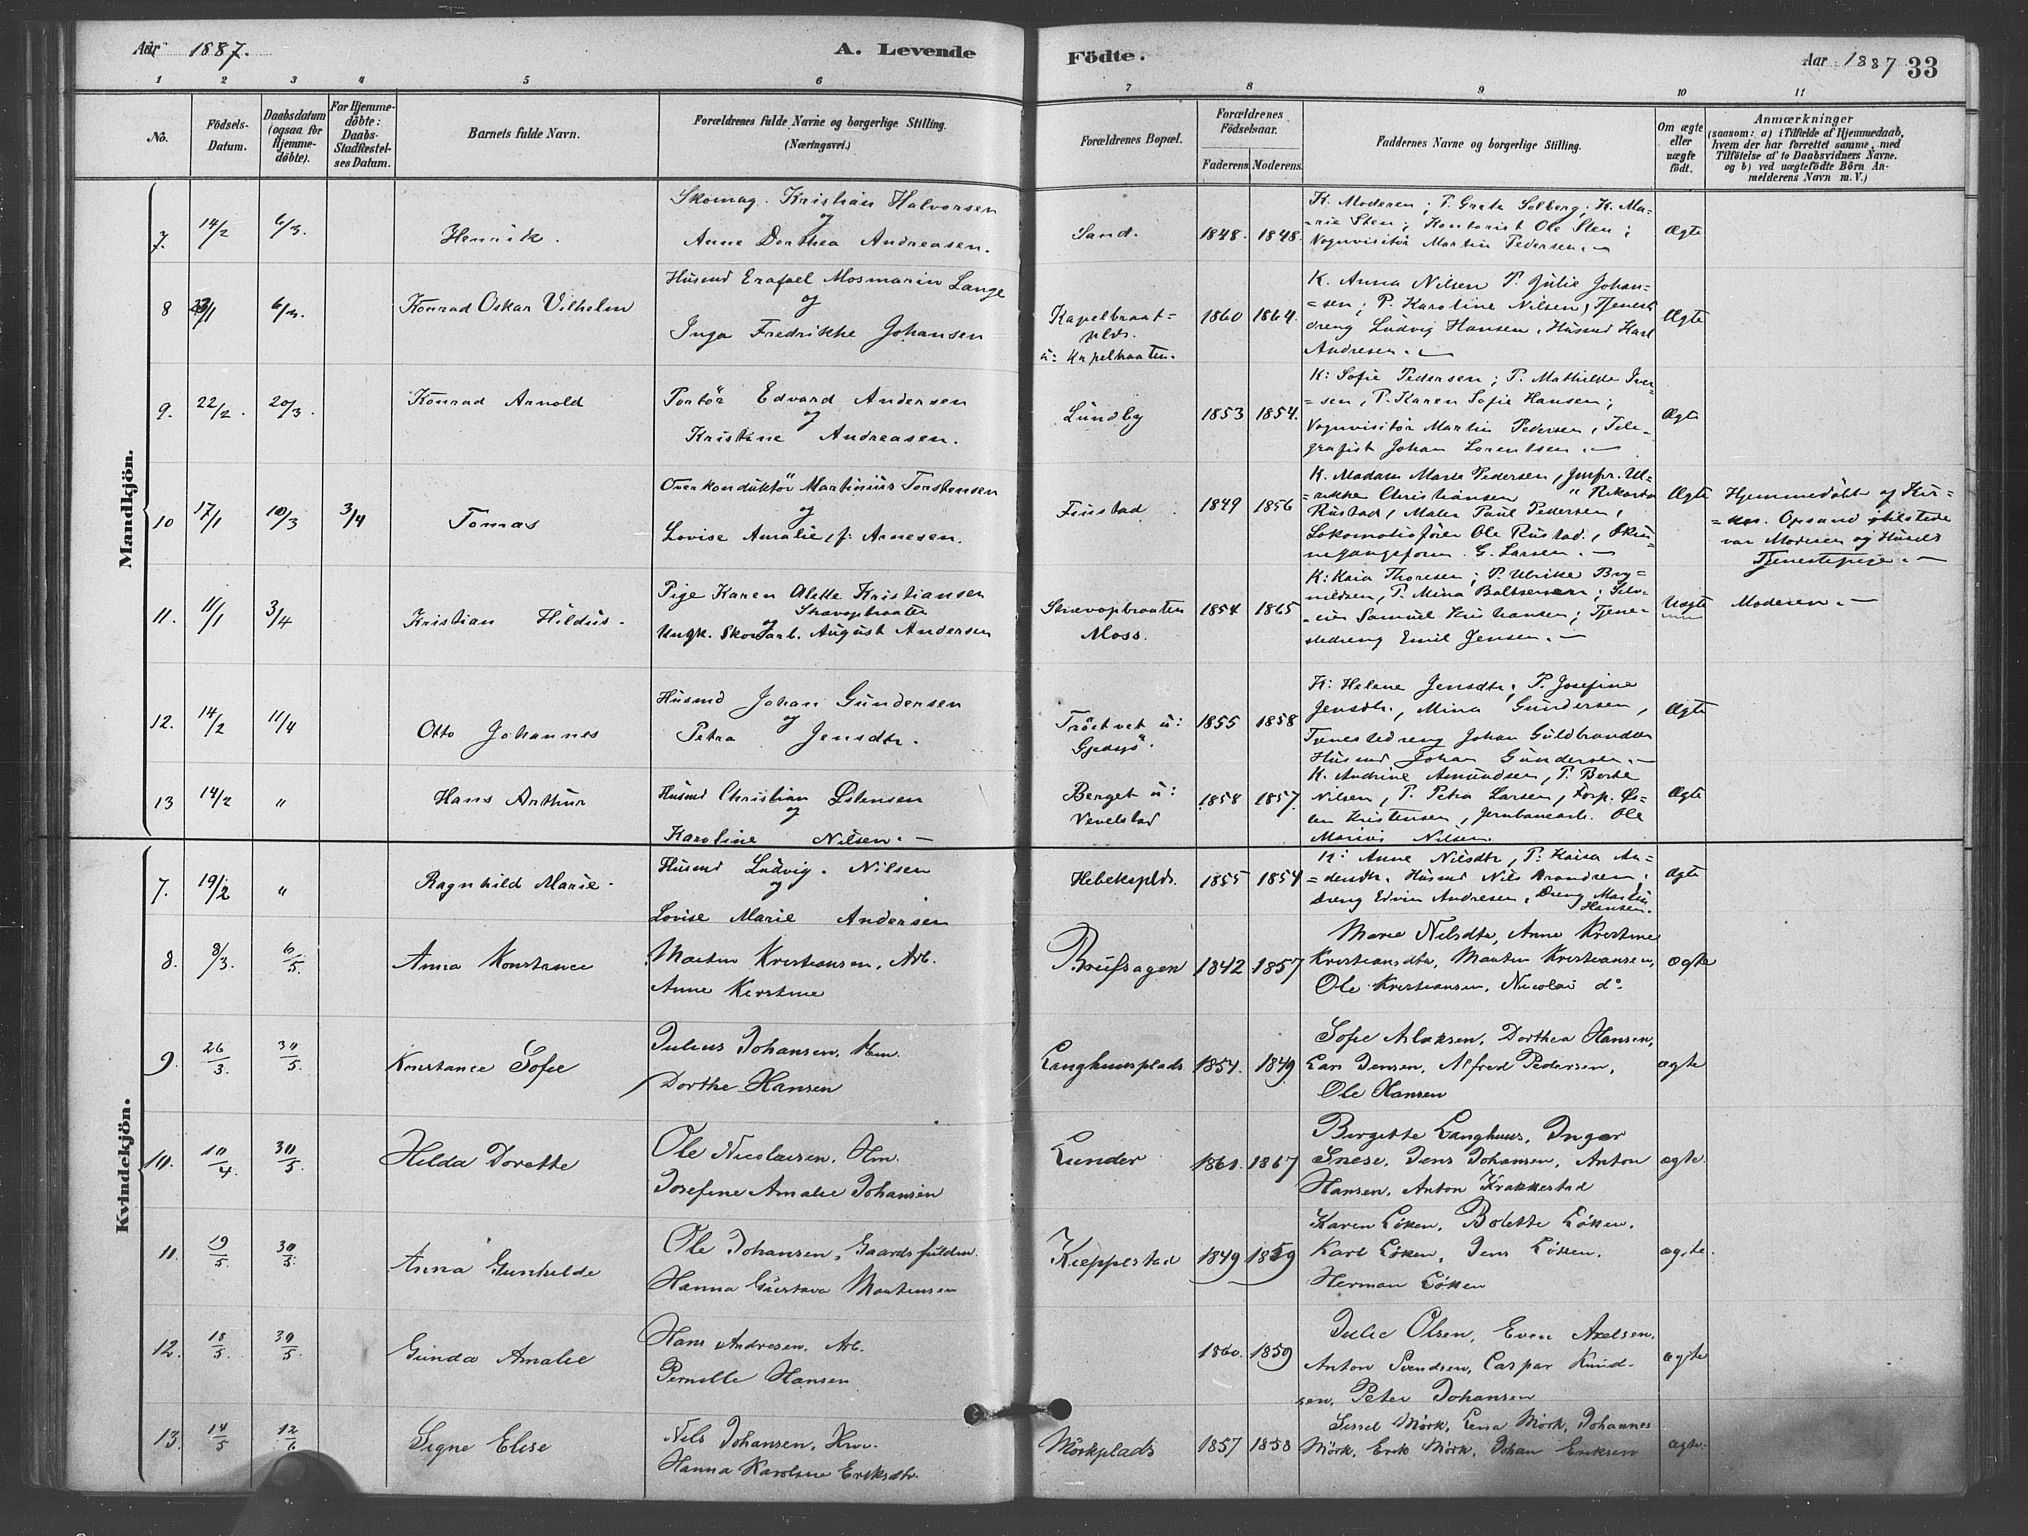 Aar 1887. A. Levende Födte. Aar 1887 33
1 2 3 4 5 6 7 8 9 10 11
No.
Födsels-Datum.
Daabsdatum (ogsaa for Hjemme-döbte).
For Hjemme-döbte: Daabs-Stadfæstel-ses Datum.
Barnets fulde Navn.
Forældrenes fulde Navne og borgerlige Stilling. (Næringsvei.)
Forældrenes Bopæl.
Forældrenes Födselsaar.
Faderens Moderens.
Faddernes Navne og borgerlige Stilling.
Om ægte eller uægte födt.
Anmærkninger
(saasom: a) i Tilfælde af Hjemmedaab,
hvem der har forrettet samme, med
Tilföielse af to Daabsvidners Navne.
og b) ved uægtefödte Börn An-
melderens Navn m. V.)
Mandkjön.
7. 14/2 6/3. Henrik.
Skomag. Kristian Halvorsen
og
Anne Dorthea Andreasen.
Sand. 1848. 1848.
K. Moderen; P. Grete Solberg; K. Ma-
-rie Sten; Kontorist Ole Sten;
Vognvisitör Martin Pedersen.
Ægte
8 6/3. Konrad Oskar Vilhelm
Husmd Erafael Mosmarin Lange
og
Inga Fredrikke Johansen
Kapelbraat=
plds.
u: Kapelbraaten.
1860 1864.
K. Anna Nilsen P. Julie Johan-
=sen; P. Karoline Nilsen, Tjenest
dreng Ludvig Hansen, Husmd Karl
Andresen.
Ægte
9. 22/2. 20/3. Konrad Arnold
Portör Edvard Andersen
og
Kristine Andreasen.
Lundby 1853 1854.
K: Sofie Pedersen; P. Mathilde Iver-
-sen, P. Karen Sofie Hansen;
Vognvisitör Martin Pedersen, Tele-
grafist Johan Lorentsen.
Ægte
10 17/1 10/3 3/4 Tomas
Overkonduktör Martinius Torstensen
og
Lovise Amalie, f. Arnesen.
Finstad 1849 1856
K. Madam Marte Pedersen, Jmfr. Ul-
rikke Christiansen " Rikarda
Rustad, Maler Paul Pedersen,
Lokomotivförer Ole Rustad, Skin-
negangsform. G. Larsen.
Ægte
Hjemmedöbt af Kir-
=kes. Opsand, tilstede
var Moderen og Husets
Tjenestepige.
11. 11/1 3/4 Kristian Hildus.
Pige Karen Alette Kristiansen
Skavopbraaten
og
Ungk. Skomarb. August Andersen
Skavopbraaten
Moss.
1854 1865
K: Kaia Thoresen; P. Ulrike Bry-
nildsen, P. Mina Baltsersen;
Samuel Kristiansen; Tjene-
stedreng Emil Jensen.
Uægte
Moderen.
12. 14/2 11/4 Otto Johannes
Husmd Johan Gundersen
og
Petra Jensdtr.
Tröetvet u:
Gjedsjö.
1855 1858
K: Helene Jensdtr, P. Josefine
Jensdtr., Mina Gundersen,
Tjenestedreng Johan Guldbrandsen
Husmd Johan Gundersen.
Ægte
13 14/2 " Hans Arthur
Husmd Christian Östensen
og
Karoline Nilsen.
Berget u:
Vevelstad
1858 1857.
K. Andrine Amundsen, P. Berte
Nilsen, P. Petra Larsen, Forp. Ös-
ten Kristensen, Jernbanearb. Ole
Marius Nilsen.
Ægte
Kvindekjön.
7. 19/2 " Ragnhild Marie.
Husmd Ludvig Nilsen
og
Lovise Marie Andersen
Hebeksplds. 1855 1854
K: Anne Nilsdtr, P: Kaisa An-
=dersdtr. Husmd Nils Brandsen;
dreng Edvin Andresen, Dreng Martin
Hansen.
Ægte
8. 8/3. 6/5 Anna Konstance
Martin Kristiansen, Arb.
Anne Kirstine
1842 1857
Marie Nilsdtr, Anne Kristine
Kristiansdtr, Martin Kristiansen,
Ole Kristiansen, Nicolai do
ægte
9. 26/3. 30/5. Konstance Sofie
Julius Johansen, Hm.
Dorthe Hansen
Langhuusplads 1854. 1849
Sofie Aslaksen, Dorthea Hansen,
Lars Jensen, Alfred Pedersen,
Ole Hansen
ægte
10. 10/4. 30/5. Hilda Dorette
Ole Nicolaisen, Hm.
Josefine Amalie Johansen
Lunder 1861. 1867
Birgitte Langhuus, Inger
Snese, Jens Johansen, Anton
Hansen, Anton Krakkestad
ægte.
11. 19/5. 30/5. Anna Gunhilde
Ole Johansen, Gaardsfuldm.
Hanna Gustava Martinsen
Kieppestad 1849 1859
Karen Löken, Bolette Löken,
Karl Löken, Jens Löken,
Herman Löken
ægte.
12. 18/5. 30/5. Gunda Amalie
Hans Andresen, Arb.
Pernille Hansen
1860. 1859
Julie Olsen, Even Axelsen,
Anton Svendsen, Caspar Knud-
sen, Peter Johansen
ægte
13. 14/5 12/6 Signe Elise
Nils Johansen, Hm.
Hanna Karoline Eriksdtr.
Mörkplads 1857 1858
Sissel Mörk, Lena Mörk, Johannes
Mörk, Erik Mörk, Johan Eriksen
ægte.